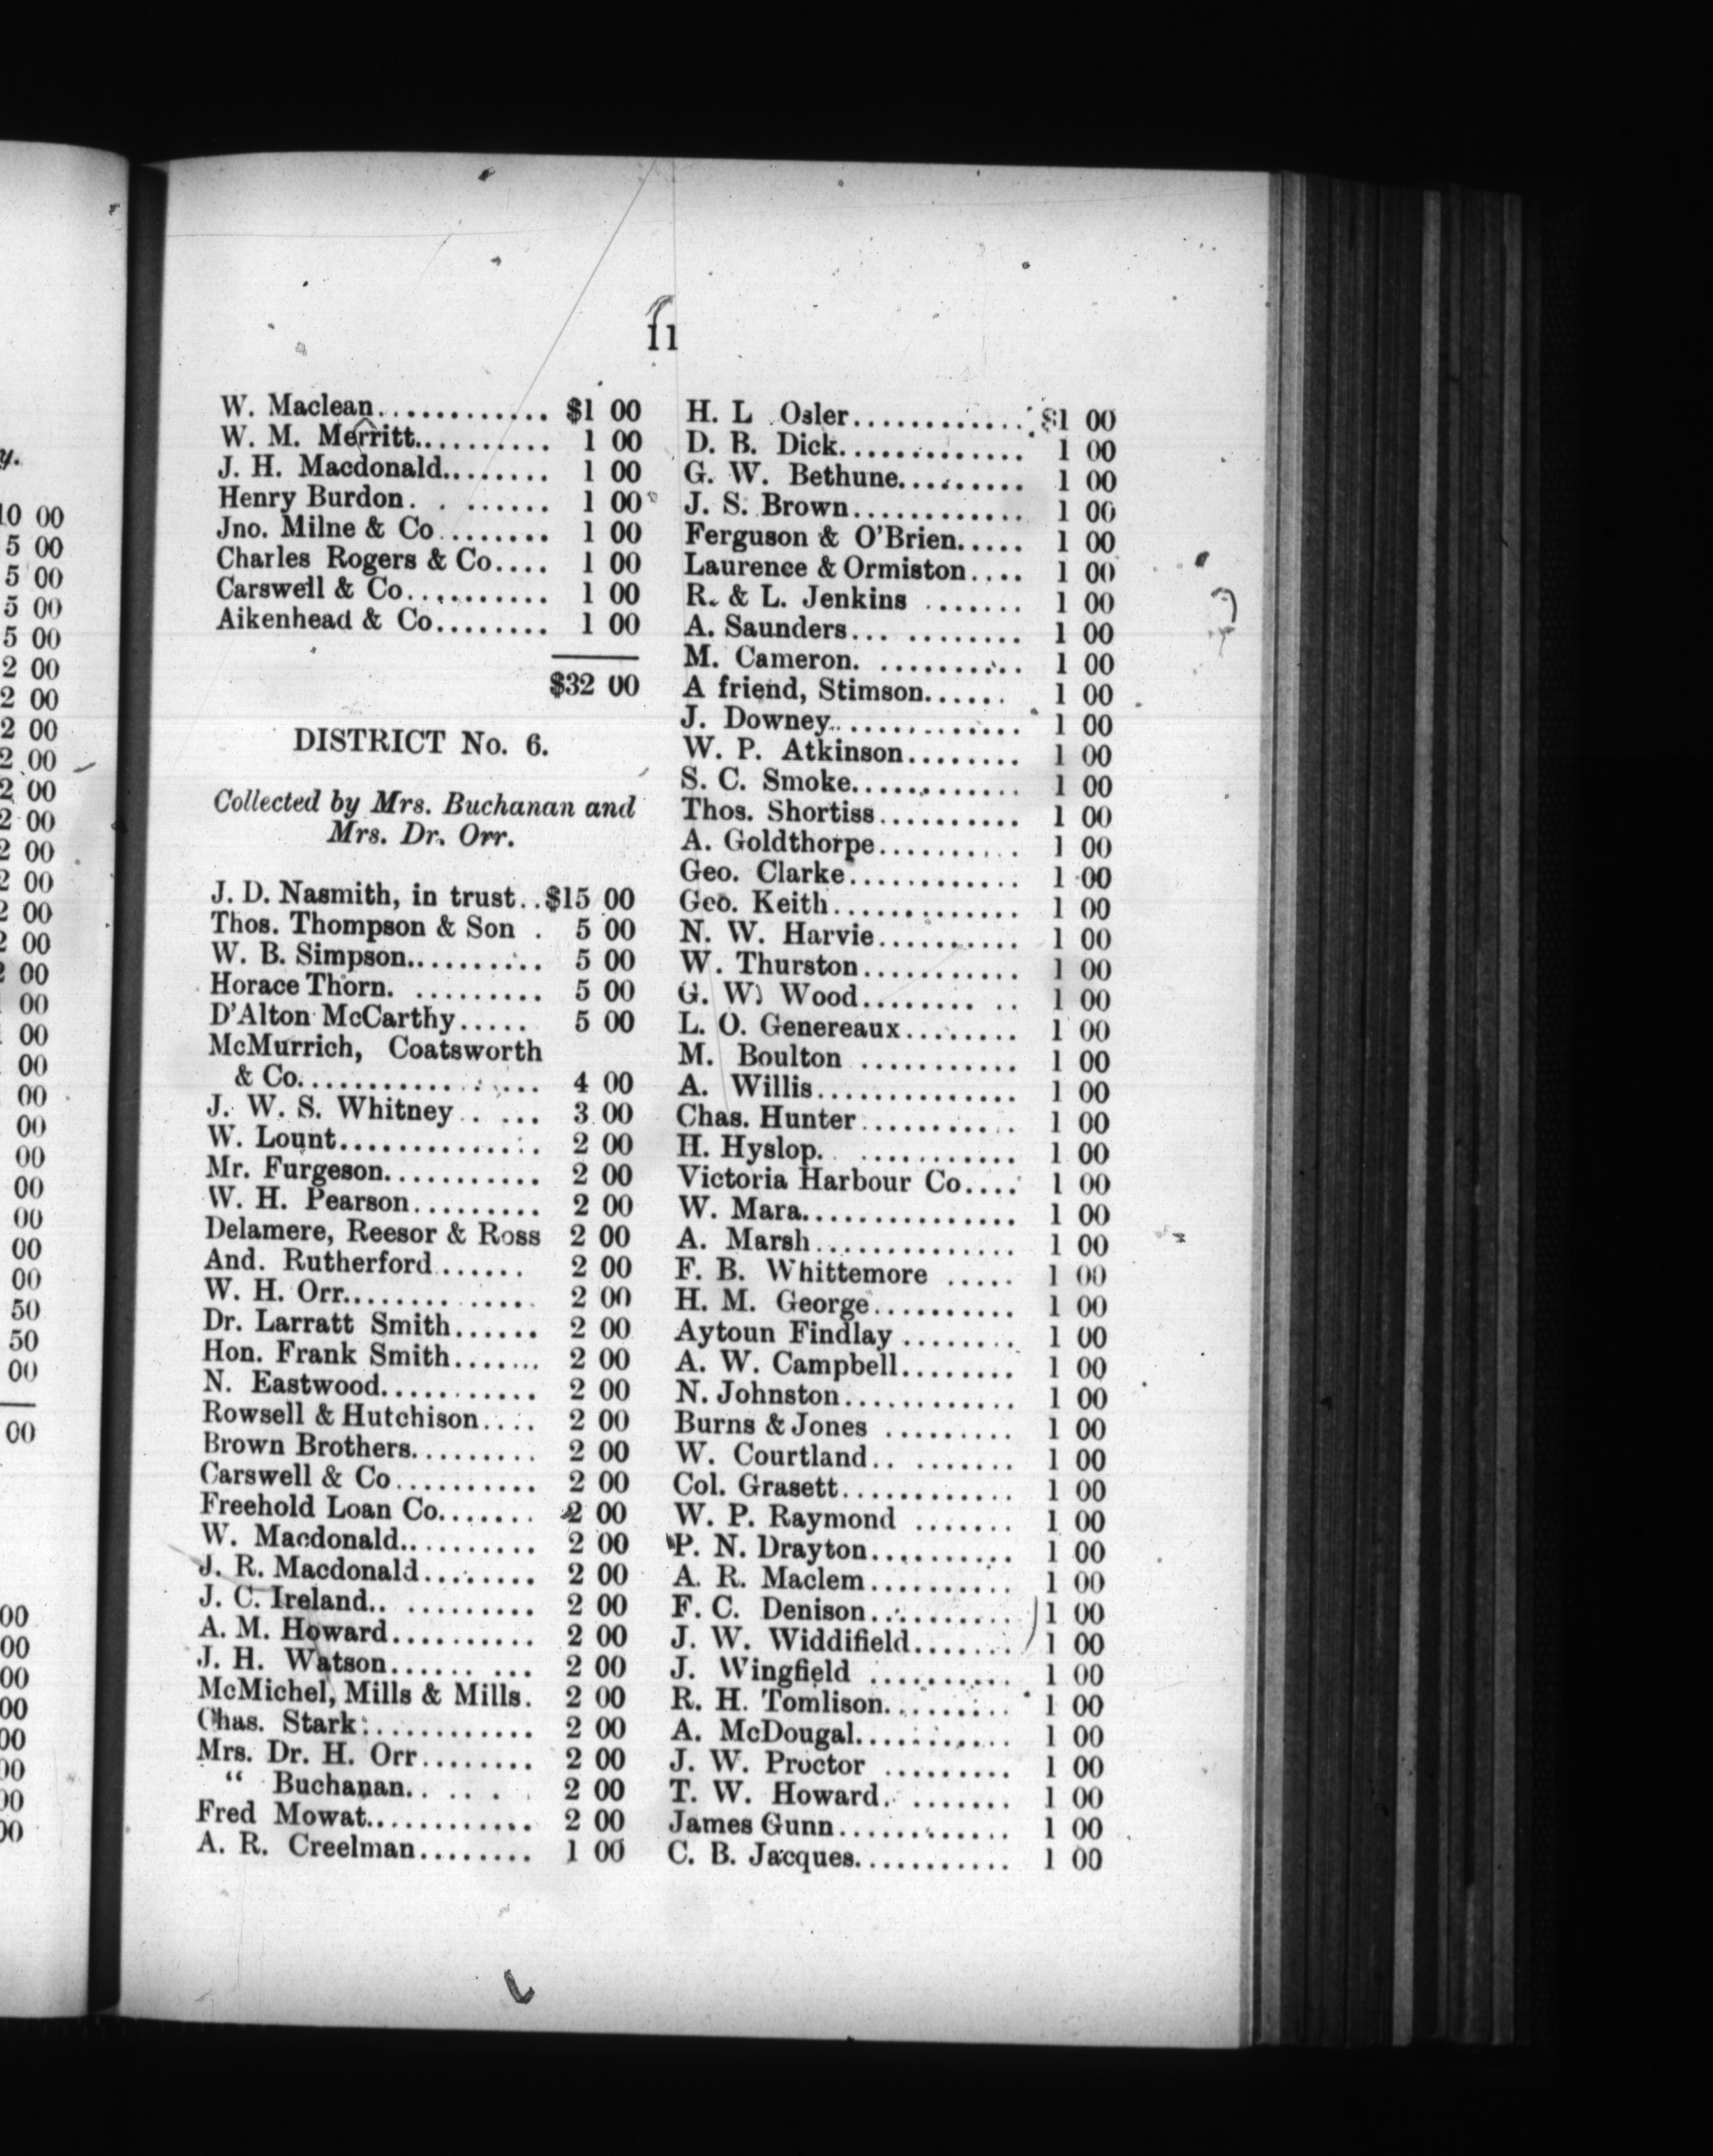 11
W. Maclean............. $1 00
W. M. Merritt.......... 1 00
J. H. Macdonald........ 1 00
Henry Burdon. . ....... 1 00
Jno. Milne & Co........ 1 00
Charles Rogers & Co.... 1 00
Carswell & Co.......... 1 00
Aikenhead & Co........ 1 00
$32 00
DISTRICT No. 6.
Collected by Mrs. Buchanan and
Mrs. Dr. Orr.
J. D. Nasmith, in trust..$15 00
Thos. Thompson & Son . 5 00
W. B. Simpson.......... 5 00
Horace Thorn. ......... 5 00
D'Alton McCarthy..... 5 00
McMurrich, Coatsworth
& Co................ 4 00
J. W. S. Whitney.. ... 3 00
W. Lount.............. 2 00
Mr. Furgeson........... 2 00
W. H. Pearson......... 2 00
Delamere, Reesor & Ross 2 00
And. Rutherford...... 2 00
W. H. Orr............. 2 00
Dr. Larratt Smith...... 2 00
Hon. Frank Smith....... 2 00
N. Eastwood........... 2 00
Rowsell & Hutchison.... 2 00
Brown Brothers......... 2 00
Carswell & Co.......... 2 00
Freehold Loan Co....... 2 00
W. Macdonald.......... 2 00
J. R. Macdonald........ 2 00
J. C. Ireland.. ......... 2 00
A. M. Howard.......... 2 00
J. H. Watson...... ... 2 00
McMichel, Mills & Mills. 2 00
Chas. Stark............ 2 00
Mrs. Dr. H. Orr........ 2 00
“ Buchanan.. ... . 2 00
Fred Mowat............ 2 00
A. R. Creelman........ 1 00
H. L Osler............. $1 00
D. B. Dick............. 1 00
G. W. Bethune......... 1 00
J. S. Brown............ 1 00
Ferguson & O'Brien..... 1 00
Laurence & Ormiston.... 1 00
R. & L. Jenkins ....... 1 00
A. Saunders... ........ 1 00
M. Cameron. .......... 1 00
A friend, Stimson...... 1 00
J. Downey............. 1 00
W. P. Atkinson........ 1 00
S. C. Smoke............ 1 00
Thos. Shortiss.......... 1 00
A. Goldthorpe.......... 1 00
Geo. Clarke............ 1 00
Geo. Keith............. 1 00
N. W. Harvie.......... 1 00
W. Thurston........... 1 00
G. W. Wood........ .. 1 00
L. O. Genereaux........ 1 00
M. Boulton ........... 1 00
A. Willis.............. 1 00
Chas. Hunter........... 1 00
H. Hyslop. ........... 1 00
Victoria Harbour Co.... 1 00
W. Mara............... 1 00
A. Marsh.............. 1 00
F. B. Whittemore ..... 1 00
H. M. George.......... 1 00
Aytoun Findlay ........ 1 00
A. W. Campbell........ 1 00
N. Johnston............ 1 00
Burns & Jones ......... 1 00
W. Courtland.. ....... 1 00
Col. Grasett............ 1 00
W. P. Raymond ....... 1 00
P. N. Drayton.......... 1 00
A. R. Maclem.......... 1 00
F. C. Denison.......... 1 00
J. W. Widdifield....... 1 00
J. Wingfield .......... 1 00
R. H. Tomlison......... 1 00
A. McDougal........... 1 00
J. W. Proctor ......... 1 00
T. W. Howard. ....... 1 00
James Gunn............ 1 00
C. B. Jacques........... 1 00